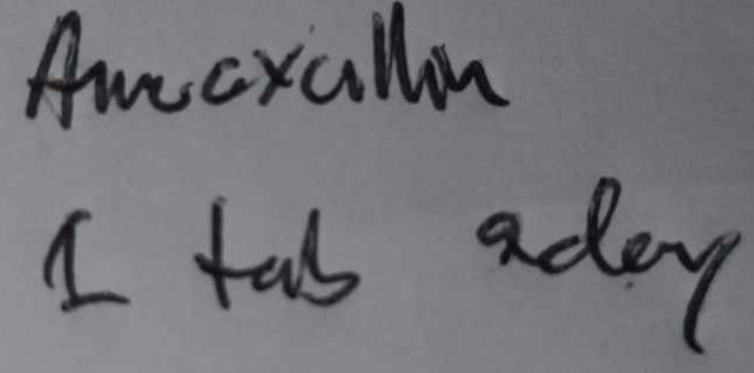 Amoxcillin
1 tab aday